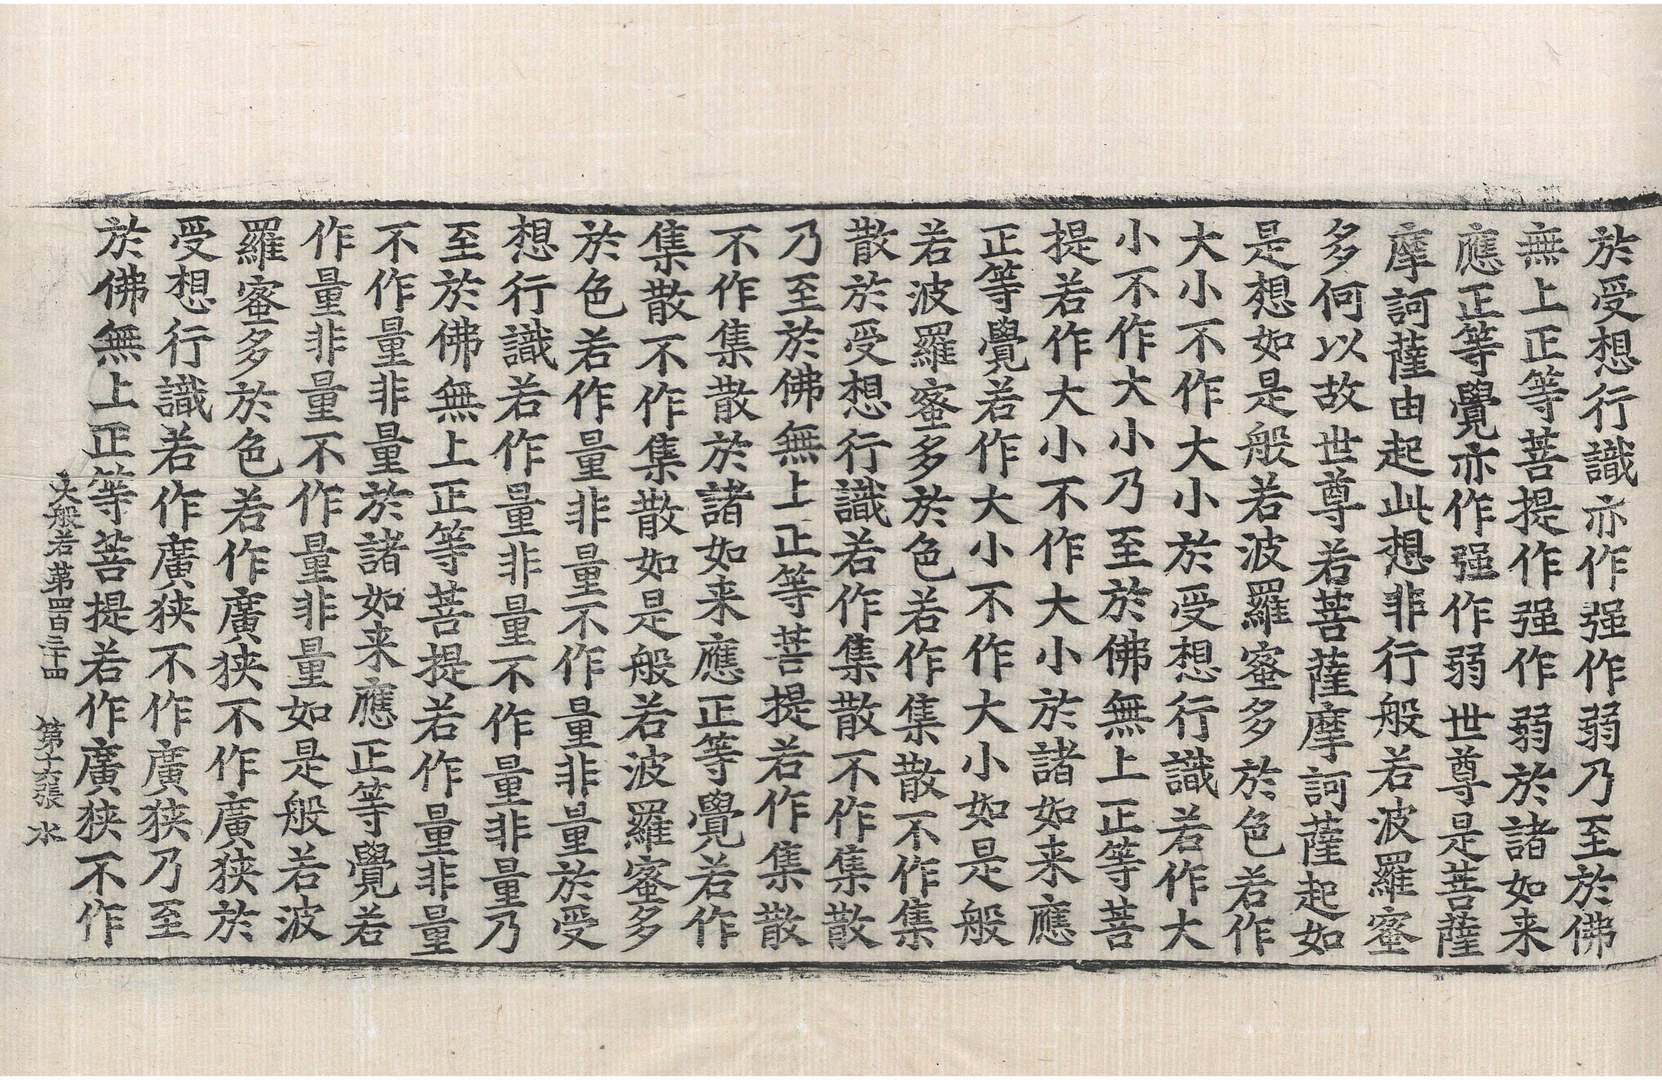 於受想行識亦作强作弱乃至於佛
無上正等菩提作强作弱於諸如来
應正等覺亦作强作弱世尊是菩薩
摩訶薩由起此想非行般若波羅蜜
多何以故世尊若菩薩摩訶薩起如
是想如是般若波羅蜜多於色若作
大小不作大小於受想行識若作大
小不作大小乃至於佛無上正等菩
提若作大小不作大小於諸如来應
正等覺若作大小不作大小如是般
若波羅蜜多於色若作集散不作集
散於受想行識若作集散不作集散
乃至於佛無上正等菩提若作集散
不作集散於諸如来應正等覺若作
集散不作集散如是般若波羅蜜多
於色若作量非量不作量非量於受
想行識若作量非量不作量非量乃
至於佛無上正等菩提若作量非量
不作量非量於諸如来應正等覺若
作量非量不作量非量如是般若波
羅蜜多於色若作廣狭不作廣狭於
受想行識若作廣狭不作廣狭乃至
於佛無上正等菩提若作廣狭不作
大般若第四百三十四 第十六張 水